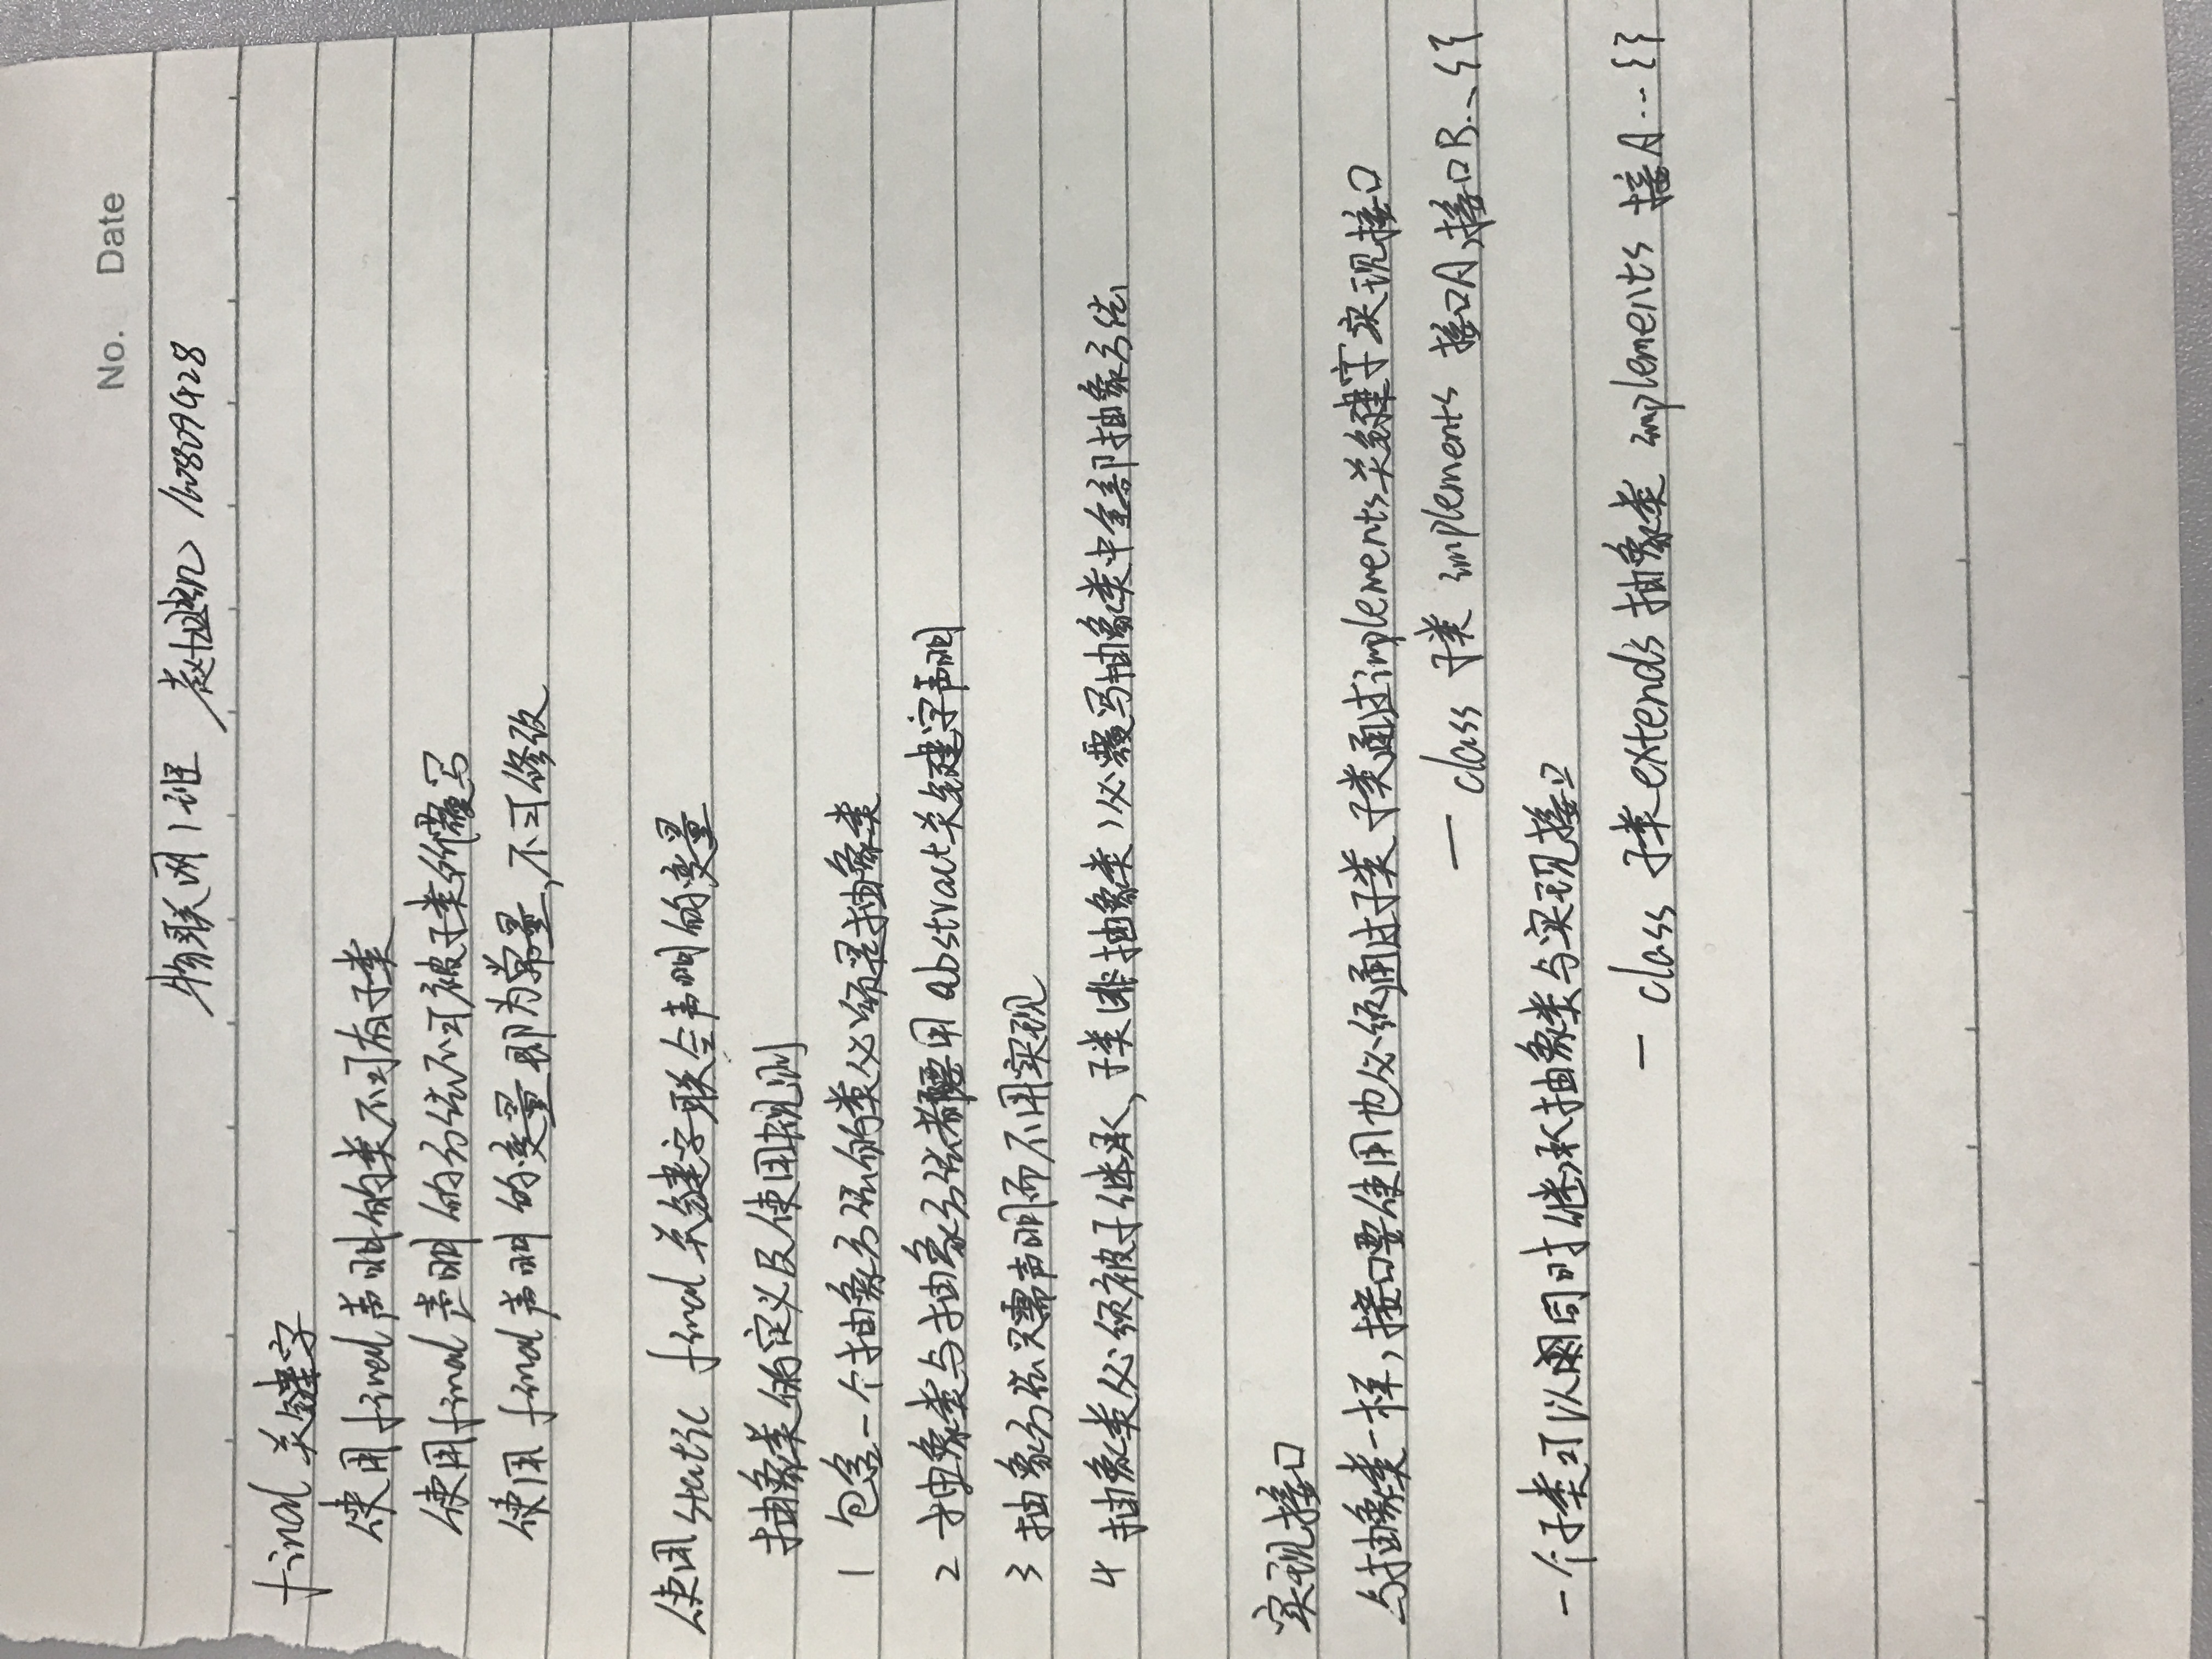 No. Date
物联网1班 赵
final 关键字
使用final声明的类不可有子类
使用final声明的方法不可被子类所覆写
使用final声明的变量即为常量,不可修改
使用static final关键字联合声明的变量
抽象类的定义及使用规则
1 包含一个抽象方法的类必须是抽象类
2 抽象类与抽象方法都要用abstract关键字声明
3 抽象方法只需声明而不用实现
4 抽象类必须被子继承,子类(非抽象类)必覆写抽象类中全部抽象方法
实现接口
与抽象类一样,接口要使用也必须通过子类 子类通过implements关键字实现接口
— class 子类 implements 接口A,接口B...{}
一个子类可以同时继承抽象类与实现接口
— class 子类 extends 抽象类 implements 接A...{}